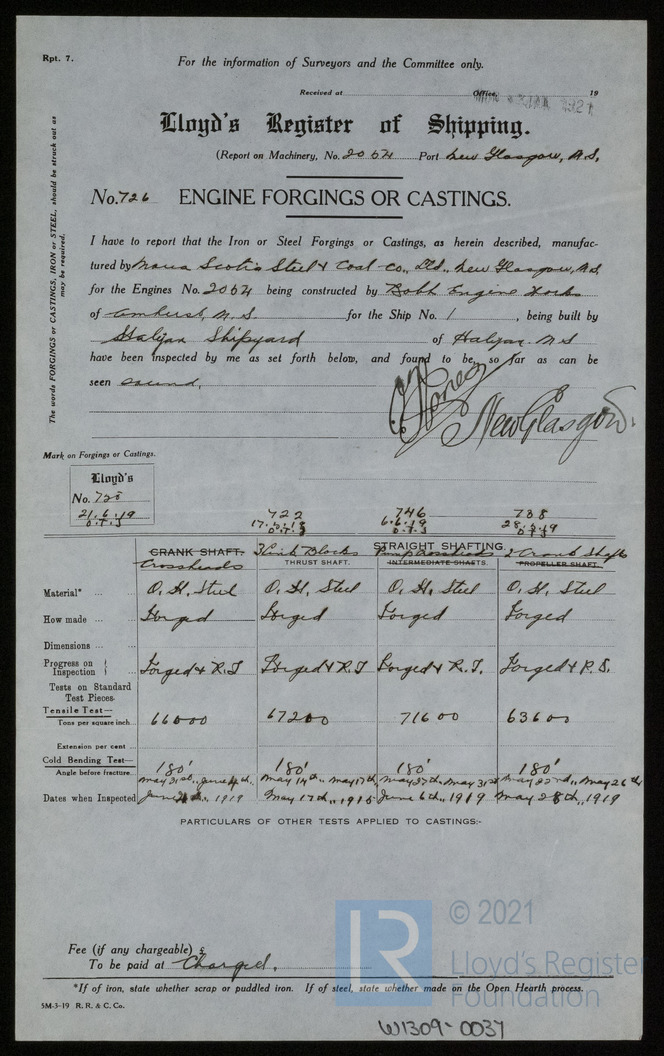 Rpt. 7.
For the information of Surveyors and the Committee only.
Received at Office, 19
Lloyd's Register of Shipping.
(Report on Machinery, No. 2054 Port New Glasgow, N.S.
No. 726 ENGINE FORGINGS OR CASTINGS.
The words FORGINGS or CASTINGS, IRON or STEEL, should be struck out as
may be required.
I have to report that the Iron or Steel Forgings or Castings, as herein described, manufac-
tured by Nova Scotia Steel & Coal Co., Ltd., New Glasgow, N.S
for the Engines No. 2054 being constructed by Robb Engine Works
of Amherst, N.S. for the Ship No. 1, being built by
Halifax Shipyard of Halifax N.S
have been inspected by me as set forth below, and found to be, so far as can be
seen sound.
New Glasgow.
Mark on Forgings or Castings.
Lloyd's
No. 726
21.6.19
O.T.J
722
746
6.6.19
O.T.J
738
28.5.19
O.T.J
CRANK SHAFT. STRAIGHT SHAFTING
Crossheads Link Blocks Pump Crossheads 2 Crank Shafts
THRUST SHAFT. INTERMEDIATE SHAFTS. PROPELLER SHAFT.
Material* O. H. Steel O. H. Steel O. H. Steel O. H. Steel
How made Forged Forged Forged Forged
Dimensions
Progress on Inspection Forged & R.T Forged & R.T Forged & R.T. Forged &
Tests on Standard
Test Pieces.
Tensile Test—
Tons per square inch 66000 67200 71600 63600
Extension per cent
Cold Bending Test—
Angle before fracture 180° 180° 180° 180°
May 31st, June 4th, May 14th, May 17th, May 27th, May 31st May 22nd, May 26th
Dates when Inspected 1919 May 17th, June 6th, 1919 May 28th, 1919
PARTICULARS OF OTHER TESTS APPLIED TO CASTINGS:-
Fee (if any chargeable) £
To be paid at Charged.
*If of iron, state whether scrap or puddled iron. If of steel, state whether made on the Open Hearth process.
5M-3-19 R. R. & C. Co.
© 2021
LR
Lloyd's Register
Foundation
W1309-0037